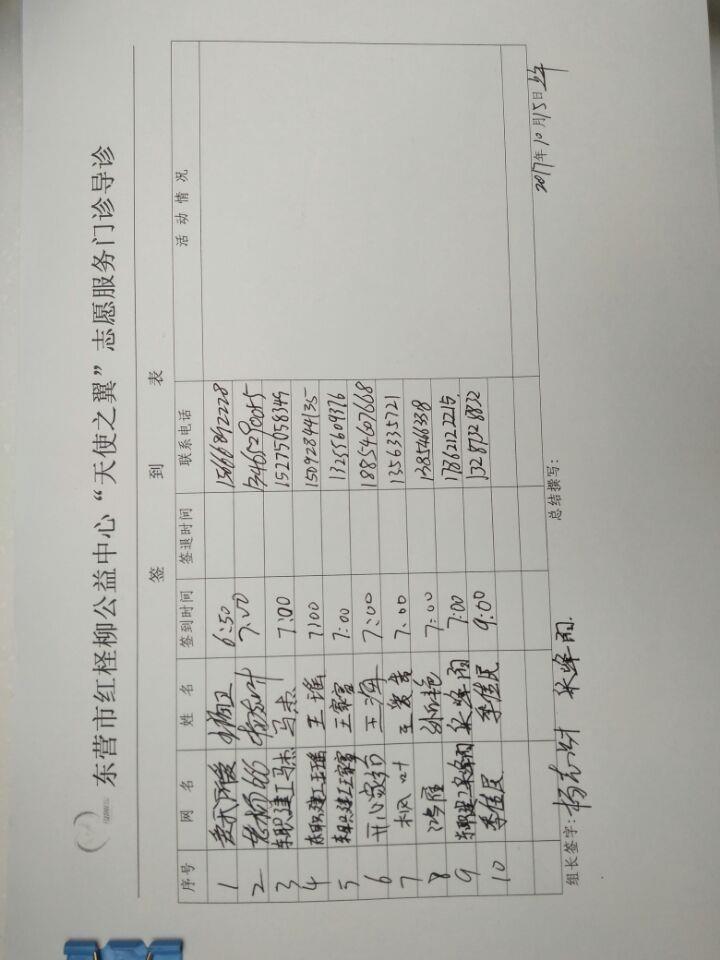 东营市红柽柳公益中心“天使之翼”志愿服务门诊导诊
签 到 表
序号 网 名 姓 名 签到时间 签退时间 联系电话 活 动 情 况
1 6:50 15666842228
2 老杨666 7:00
3 东职建工马杰 马杰 7:00 15275058349
4 东职建工王瑶 王瑶 7:00 15092844135
5 东职建工王寡宣 王寡宣 7:00 13255609376
6 开心家节 王海 7:00 18854607668
7 枫叶 7:00 1356335721
8 鸿雁 孙艳 7:00 1385466338
9 东职建工张峰雨 张峰雨 7:00 17862122215
10 李佳民 李佳民 9:00 13287328832
组长签字: 张峰雨 总结撰写: 2017年10月15日